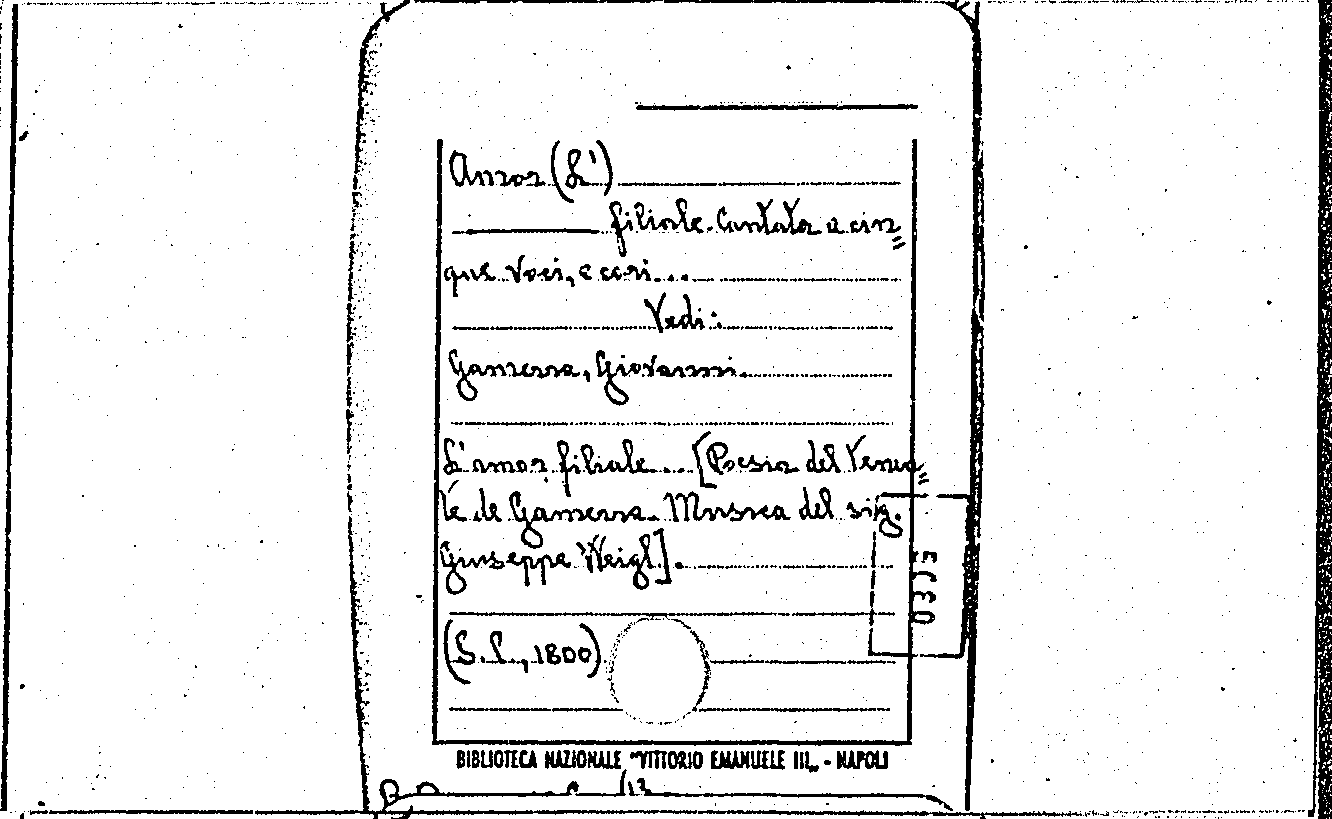 Amor (L')
filiale. Cantata a cin=
que voci, e cori...
Vedi:
Gamerra, Giovanni.
L'amor filiale... [Poesia del Tenen=
te de Gamerra. Musica del sig.
Giuseppe Weigl].
(S. l., 1800)
BIBLIOTECA NAZIONALE "VITTORIO EMANUELE III„ - NAPOLI